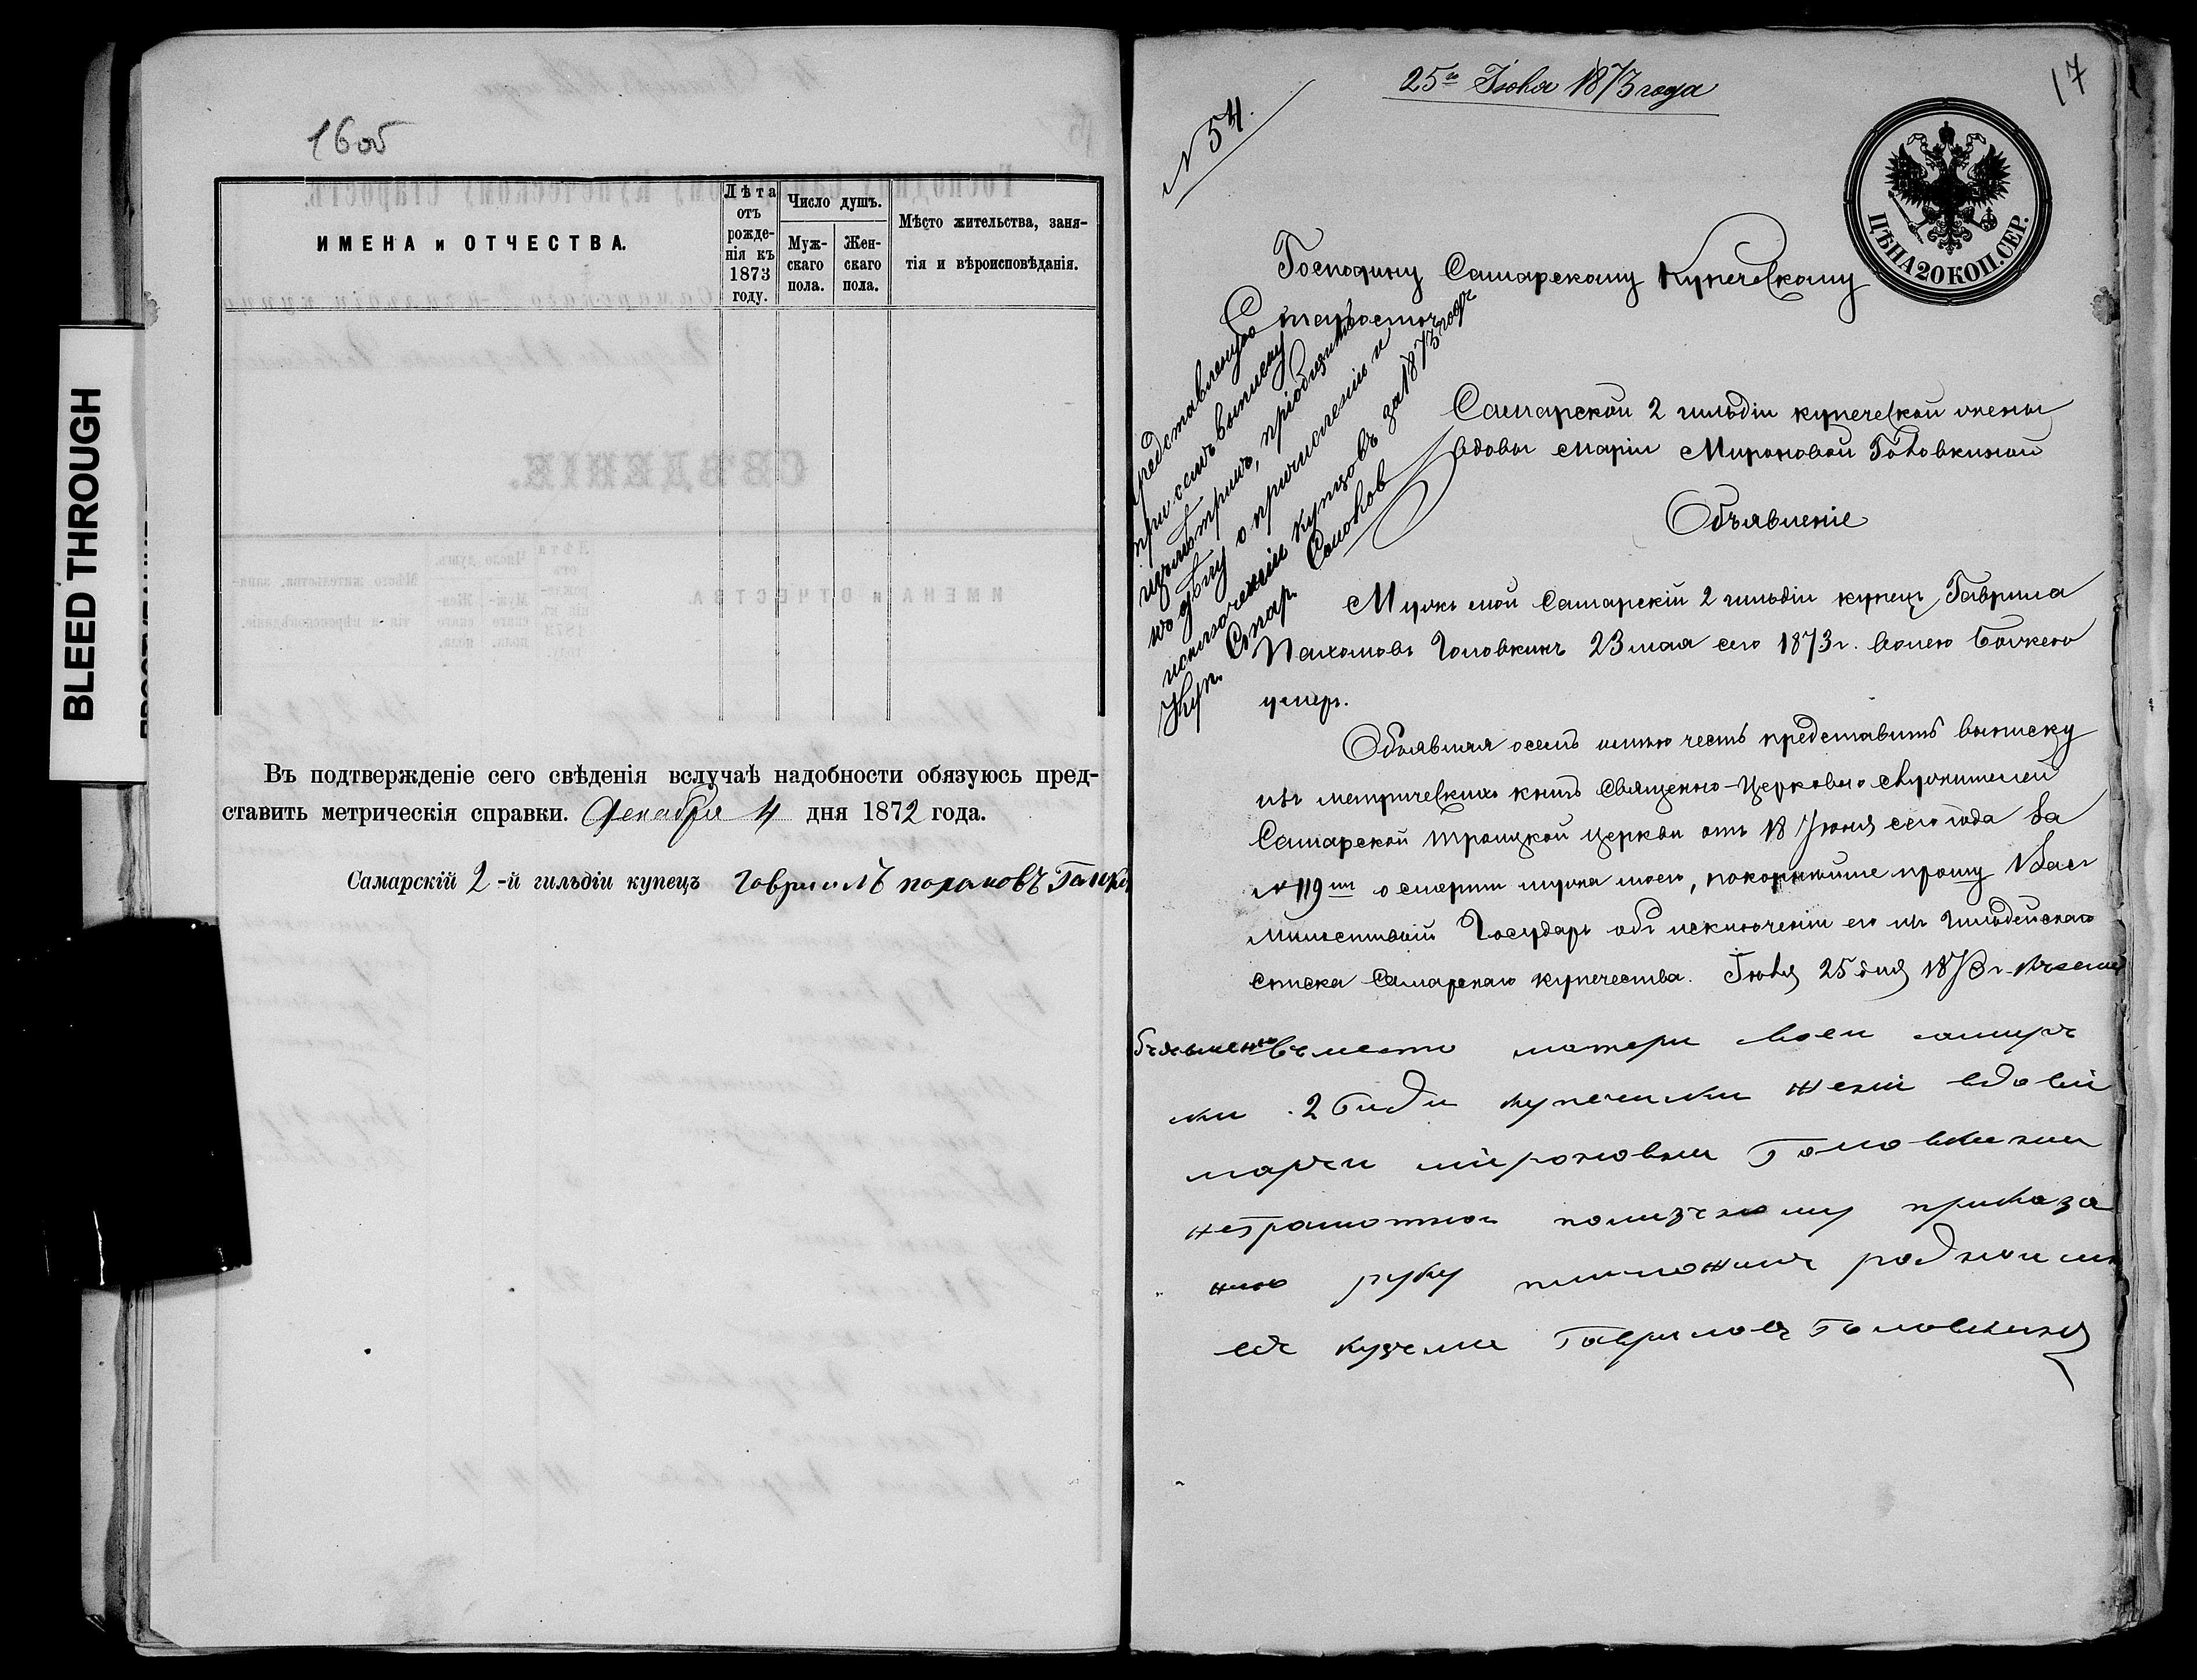 BLEED THROUGH
16 об
ИМЕНА и ОТЧЕСТВА.
Лѣта отъ рожденія къ 1873 году.
Число душъ.
Мужскаго пола.
Женскаго пола.
Мѣсто жительства, занятія и вѣроисповѣданія.
Въ подтвержденіе сего свѣденія вслучаѣ надобности обязуюсь пред-
ставить метрическія справки. Декабря 4 дня 1872 года.
Самарскій 2-й гильдіи купецъ Гавриилъ
17
25го Іюня 1873 года
N 54.
ЦѢНА 20 КОП. СЕР.
Господину Самарскому Купеческому
Старостѣ
Представленную
при семъ выписку
пріобщить
къ дѣлу о причисленіи и
исключеніи купцовъ за 1873 годъ
Куп. Стар.
Самарской 2 гильдіи купеческой жены
вдовы Маріи Мироновой Головкиной
Объявленіе
Мужъ мой Самарскій 2 гильдіи купецъ Гаврила
Пахомовъ Головкинъ 23 мая сего 1873 г. волею Божею
умеръ.
Объявляя осемъ имѣю честь представить выписку
изъ метрическихъ книгъ Священно-Церковно служителей
Самарской Троицкой церкви отъ 18 Іюня сего года за
N 119мъ о смерти мужа моего, покорнѣйше прошу Васъ
Милостивый Государь объ исключеніи его изъ Гильдейскаго
списка Самарскаго купечества. Іюня 25 дня 1873 г. Къ сему
вместо матери своей самарс
кой 2 гилди купечески жени вдови
марьи мироновни Головкини
неграмотной полизчному приказа
нию руку приложилъ родной сынъ
её кузьма Гавриловъ Головкинъ